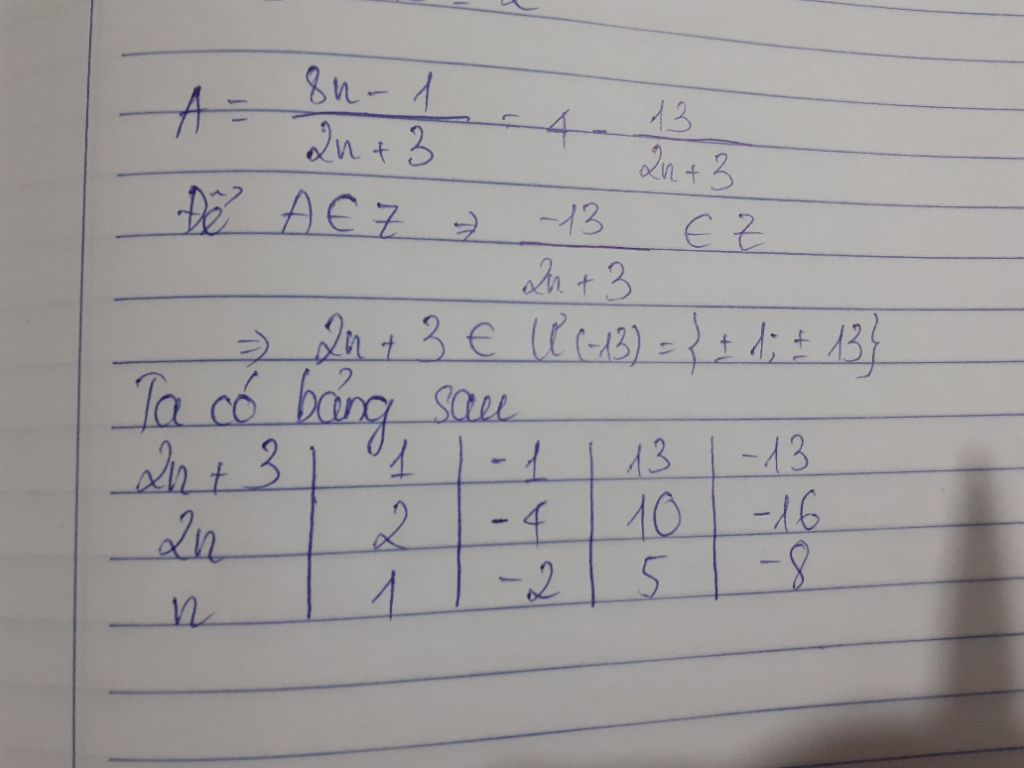 A = \frac{8n - 1}{2n + 3} = 4 - \frac{13}{2n + 3}
Để A ∈ Z ⇒ \frac{-13}{2n + 3} ∈ Z
⇒ 2n + 3 ∈ Ư(-13) = {± 1; ± 13}
Ta có bảng sau
2n + 3 | 1 | -1 | 13 | -13
2n | 2 | -4 | 10 | -16
n | 1 | -2 | 5 | -8